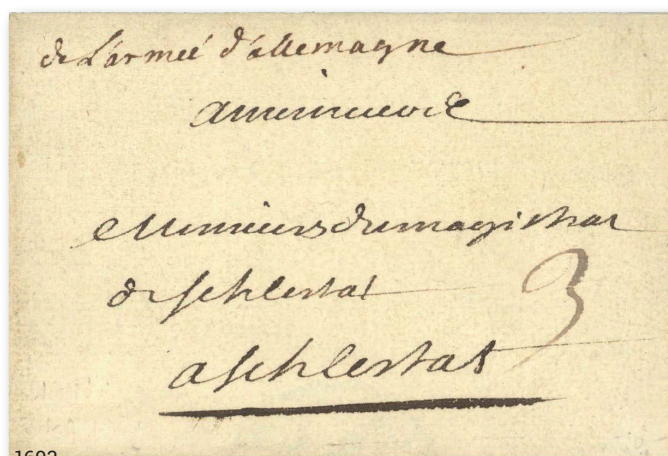 de L'armeé d'allemagne
a messieurs
Messieurs du magistrat
de schlestat
3
a schlestat
1692